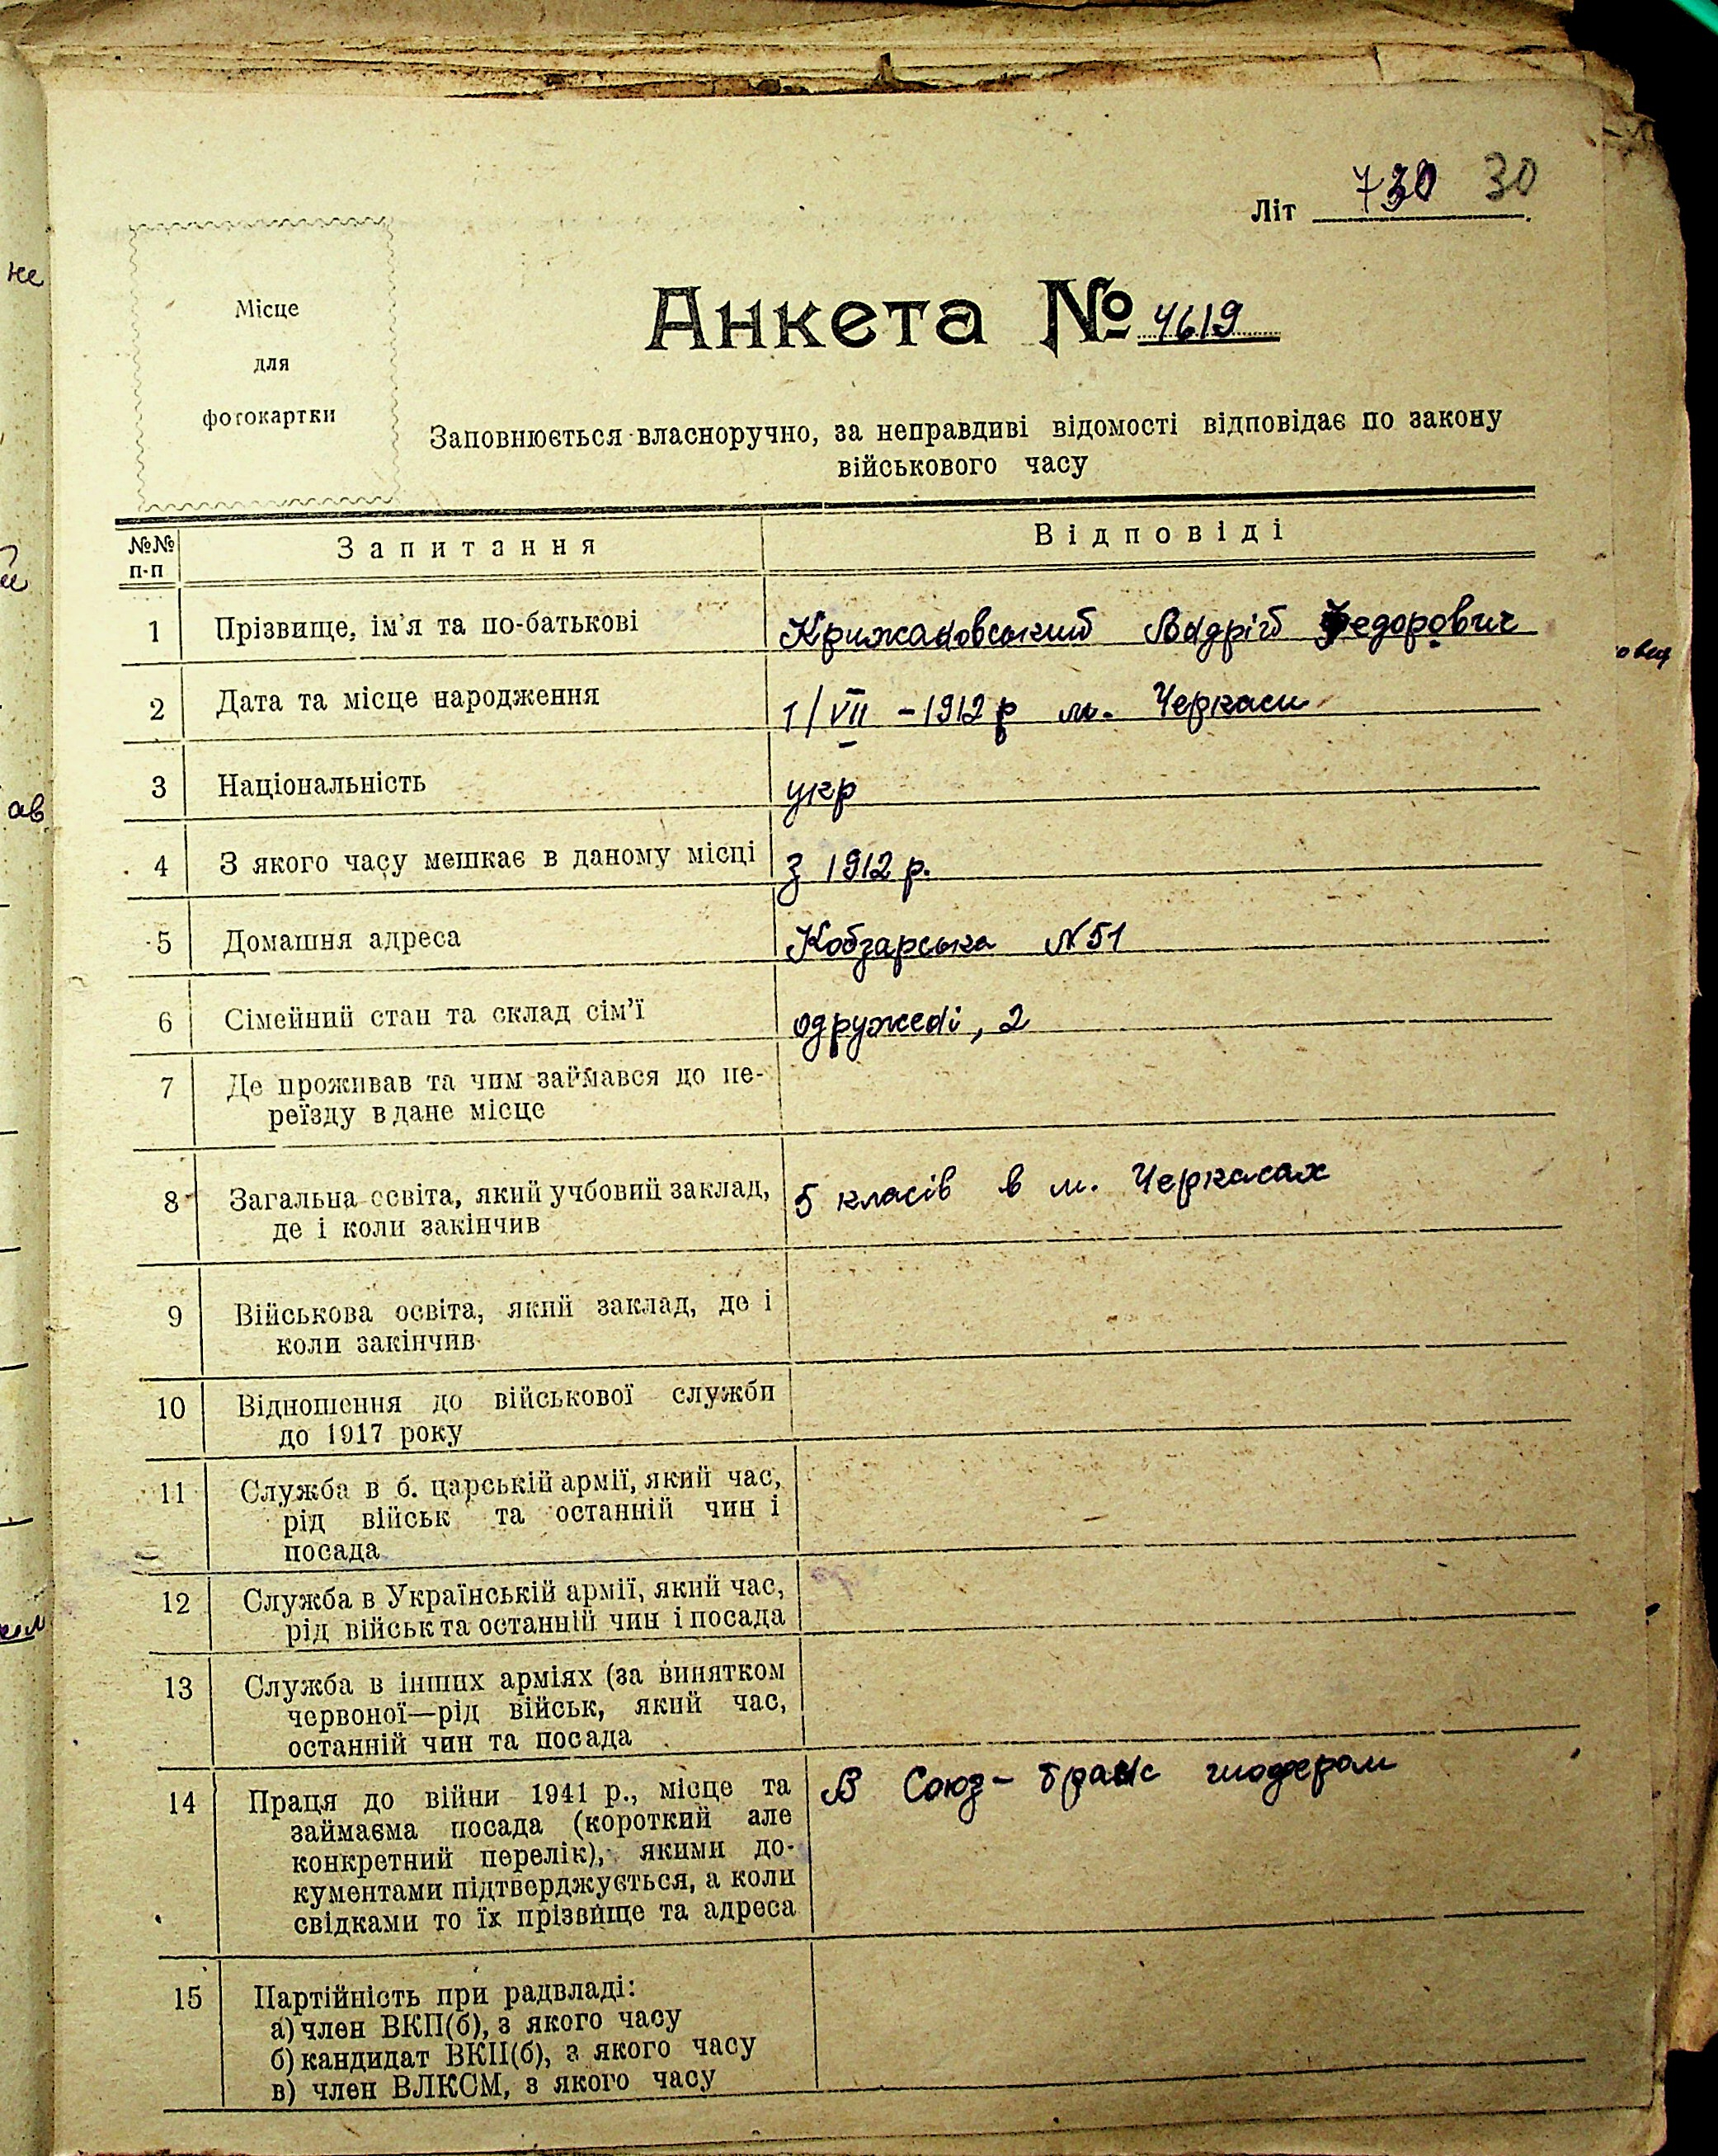 730 30
Літ
Місце
для
фотокартки
Анкета № 4619
Заповнюється власноручно, за неправдиві відомості відповідає по закону
військового часу
№№ п-п Запитання Відповіді
1 Прізвище, ім'я та по-батькові Крижановський Андрій Федорович
2 Дата та місце народження 1/VII – 1912 р м. Черкаси
3 Національність укр
4 З якого часу мешкає в даному місці З 1912 р.
5 Домашня адреса Кобзарська №51
6 Сімейний стан та склад сім'ї одружені, 2
7 Де проживав та чим займався до пе-
реїзду в дане місце
8 Загальна освіта, який учбовий заклад, 5 класів в м. Черкасах
де і коли закінчив
9 Військова освіта, який заклад, де і
коли закінчив
10 Відношення до військової служби
до 1917 року
11 Служба в б. царській армії, який час,
рід військ та останній чин і
посада
12 Служба в Українській армії, який час,
рід військ та останній чин і посада
13 Служба в інших арміях (за винятком
червоної—рід військ, який час,
останній чин та посада
14 Праця до війни 1941 р., місце та В Союз-транс шофером
займаєма посада (короткий але
конкретний перелік), якими до-
кументами підтверджується, а коли
свідками то їх прізвище та адреса
15 Партійність при радвладі:
а) член ВКП(б), з якого часу
б) кандидат ВКП(б), з якого часу
в) член ВЛКСМ, з якого часу